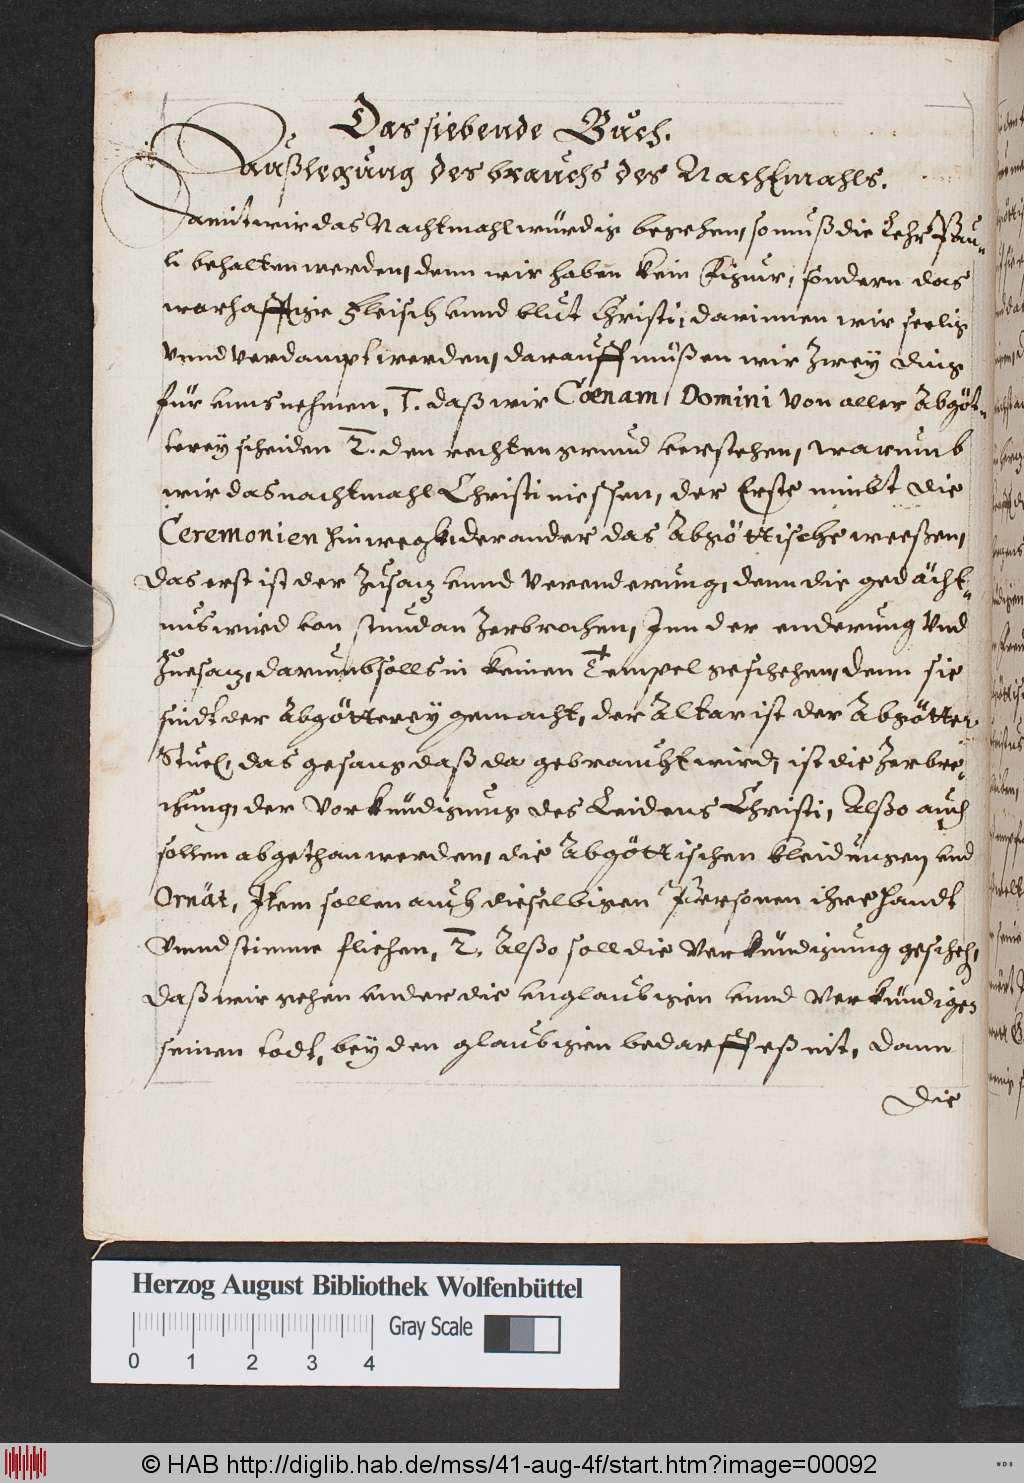 Das siebende Buch.
Außlegung des brauchs des Nachtmahls.
Damit wir das Nachtmahl würdig begehen, so muß die Lehr Pau-
li behalten werden, denn wir haben kein Figuur, sondern das
warhafftige Fleisch vnnd blut Christi, darinnen wir seelig
Vnnd verdampt werden, darauff müßen wir Zwey ding
für vnns nehmen, 1. daß wir Cœnam Domini von aller Abgöt-
terey scheiden 2. den rechten grund verstehen, warumb
wir das nachtmahl Christi niessen, der Erste nimbt die
Ceremonien hinwegk, der ander das Abgöttische weeßen,
das erst ist der Zusatz vnnd verenderung, denn die gedächt-
nus wird von stund an Zerbrochen, Inn der enderung Vnd
Zuesatz, darumb solls in keinen Tempel geschehen, denn sie
sindt der Abgötterey gemacht, der Altar ist der Abgötter
Stuel, das gesang daß da gebraucht wird, ist die Zerbre-
chung, der Vorkündigung des Leidens Christi, Alßo auch
sollen abgethan werden, die Abgöttischen kleidungen vnd
Ornät, Item sollen auch dieselbigen Personen ihre handt
Vnnd stimme fliehen, 2. Alßo soll die Verkündigung gescheh,
daß wir gehen vnder die vnglaubigen vnnd Verkündigen
seinen todt, bey den glaubigen bedarff eß nit, dann
die
Herzog August Bibliothek Wolfenbüttel
Gray Scale
0 1 2 3 4
© HAB http://diglib.hab.de/mss/41-aug-4f/start.htm?image=00092